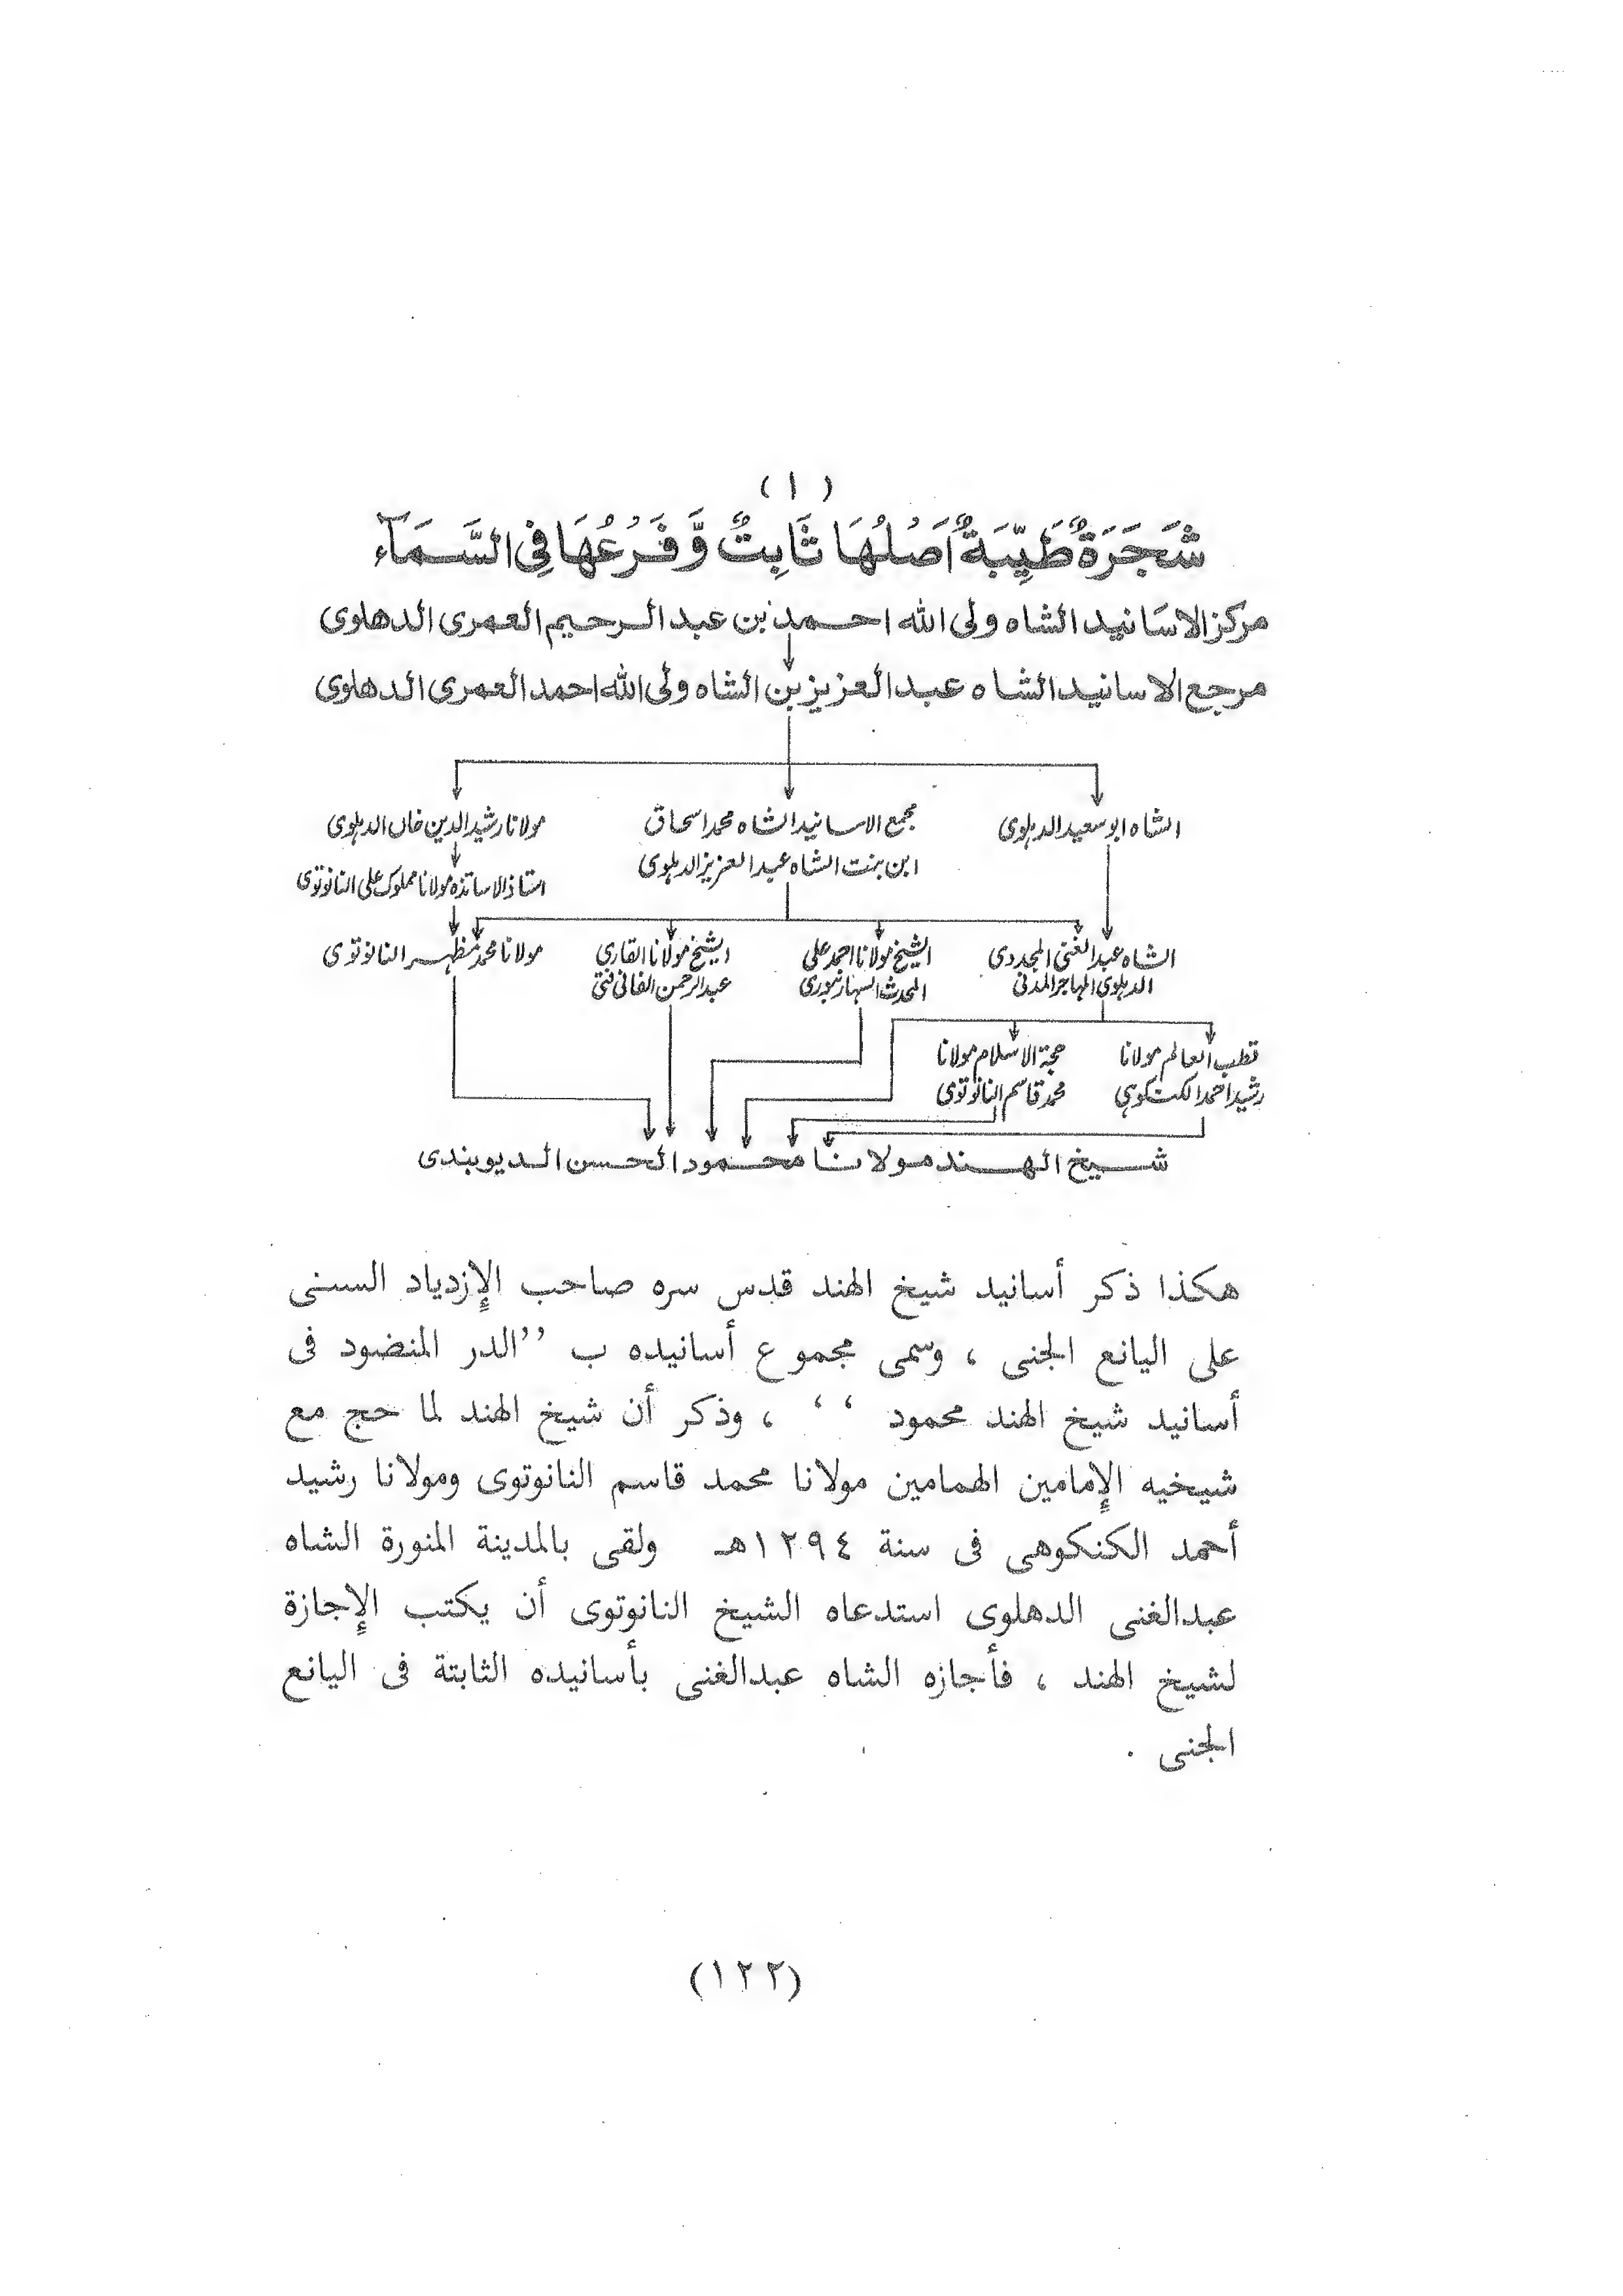 (١)
شَجَرَةٌ طَيِّبَةٌ اَصْلُهَا ثَابِتٌ وَّفَرْعُهَا فِی السَّمَآء
مركز الاسَانيد الشاه ولی الله احمد بن عبد الرحيم العمری الدهلوی
مرجع الاسانيد الشاه عبد العزيز بن الشاه ولی الله احمد العمری الدهلوی
الشاه ابو سعيد الدہلوی
مجمع الاسانيد الشاه محمد اسحاق
ابن بنت الشاه عبد العزيز الدہلوی
مولانا رشيد الدين خاں الدہلوی
استاذ الاساتذه مولانا مملوک علی النانوتوی
الشاه عبد الغنی المجددی
الدہلوی المہاجر المدنی
الشيخ مولانا احمد علی
المحدث السہارنپوری
الشيخ مولانا القاری
عبد الرحمن الفانی فتی
مولانا محمد مظہر النانوتوی
قطب العالم مولانا
رشيد احمد الكنكوہی
حجة الاسلام مولانا
محمد قاسم النانوتوی
شيخ الهند مولانا محمود الحسن الديوبندی
هكذا ذكر أسانيد شيخ الهند قدس سره صاحب الإزدياد السنی
علی اليانع الجنی ، وسمی مجموع أسانيده ب ’’الدر المنضود فی
أسانيد شيخ الهند محمود ‘‘ ، وذكر أن شيخ الهند لما حج مع
شيخيه الإمامين الهمامين مولانا محمد قاسم النانوتوی ومولانا رشيد
أحمد الكنكوهی فی سنة ١٢٩٤هـ ولقی بالمدينة المنورة الشاه
عبدالغنی الدهلوی استدعاه الشيخ النانوتوی أن يكتب الإجازة
لشيخ الهند ، فأجازه الشاه عبدالغنی بأسانيده الثابتة فی اليانع
الجنی .
(١٢٢)